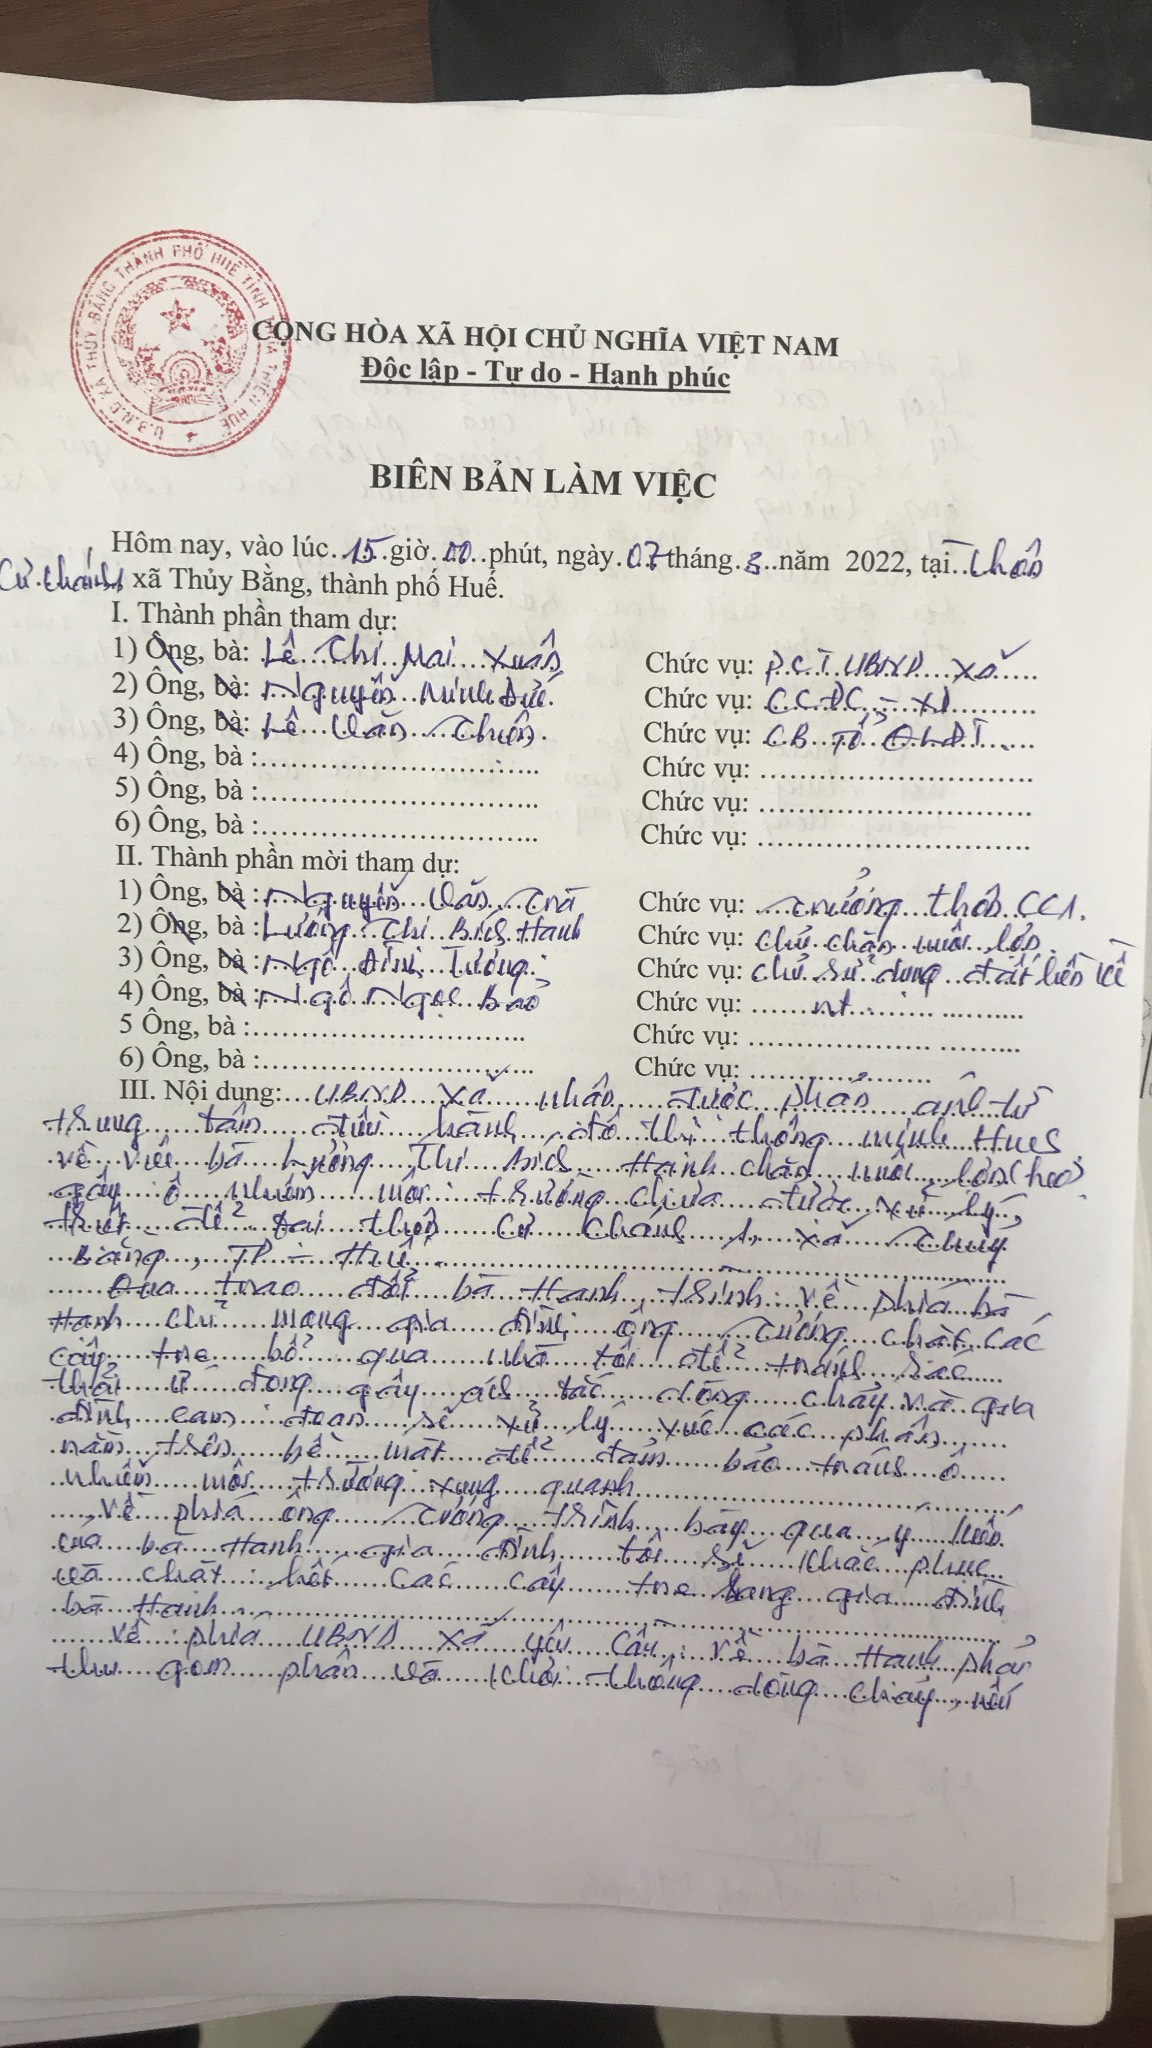 U.B.N.D XÃ THỦY BẰNG THÀNH PHỐ HUẾ TỈNH THỪA THIÊN HUẾ
CỘNG HÒA XÃ HỘI CHỦ NGHĨA VIỆT NAM
Độc lập - Tự do - Hạnh phúc
BIÊN BẢN LÀM VIỆC
Hôm nay, vào lúc 15 giờ 00 phút, ngày 07 tháng 3 năm 2022, tại Thôn
Cư Chánh 1 xã Thủy Bằng, thành phố Huế.
I. Thành phần tham dự:
1) Ông, bà: Lê Thị Mai Xuân Chức vụ: P.C.T UBND xã
2) Ông, bà: Nguyễn Minh Đức Chức vụ: CCĐC - XD
3) Ông, bà: Lê Văn Chức vụ: CB Tổ QLĐT
4) Ông, bà : Chức vụ:
5) Ông, bà : Chức vụ:
6) Ông, bà : Chức vụ:
II. Thành phần mời tham dự:
1) Ông, bà : Nguyễn Văn Trà Chức vụ: Trưởng thôn CC1.
2) Ông, bà : Lương Thị Bích Hạnh Chức vụ: Chủ chăn nuôi lợn
3) Ông, bà : Ngô Đình Tướng Chức vụ: chủ sử dụng đất liền kề
4) Ông, bà : Ngô Ngọc Bảo Chức vụ: nt
5 Ông, bà : Chức vụ:
6) Ông, bà : Chức vụ:
III. Nội dung: UBND xã nhận được phản ánh từ
trung tâm điều hành đô thị thông minh Hues
về việc bà Lương Thị Bích Hạnh chăn nuôi lợn (heo)
gây ô nhiễm môi trường chưa được xử lý,
để tại thôn Cư Chánh 1, xã Thủy
Bằng, TP - Huế.
Qua trao đổi bà Hạnh trình về phía bà
Hạnh chỉ mong gia đình ông Tướng chặt các
cây tre bổ qua nhà tôi để tránh rác
thải ứ đọng gây ách tắc dòng chảy và gia
đình cam đoan sẽ xử lý xúc các phân
nằm trên bề mặt để đảm bảo tránh ô
nhiễm môi trường xung quanh
Về phía ông Tướng trình bày qua ý kiến
của bà Hạnh gia đình tôi sẽ khắc phục
và chặt hết các cây tre sang gia đình
bà Hạnh.
Về phía UBND xã yêu cầu: về bà Hạnh phải
thu gom phân và khơi thông dòng chảy, nếu